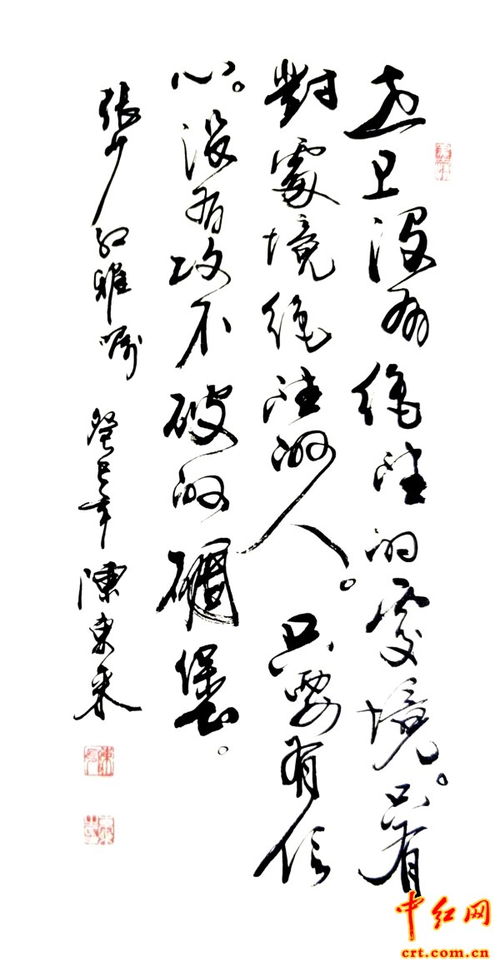 世上没有绝望的處境。只有
對處境绝望的人。只要有信
心。没有攻不破的碉堡。
張少红雅嘱 癸巳年 陳東来
中红网
crt.com.cn